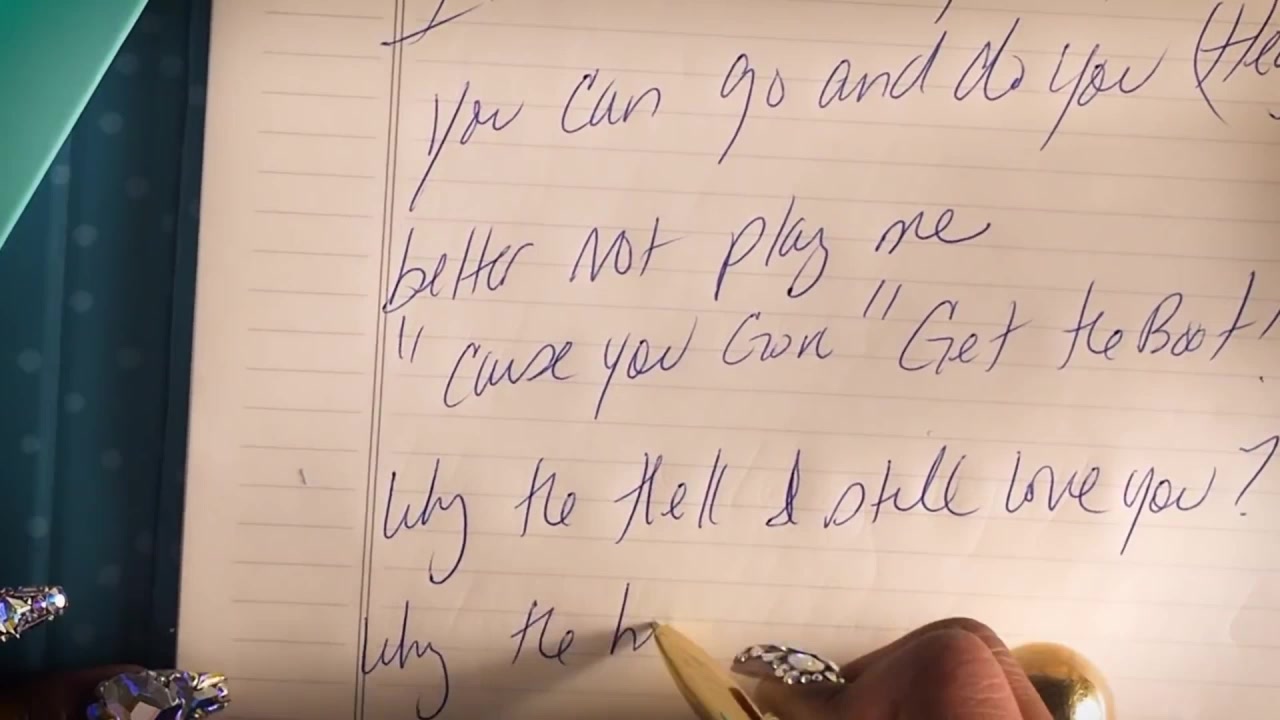 You can go and do you (He
better not play me
"cause you Gon" Get the Boot!
Why the Hell I still love you?
Why the h